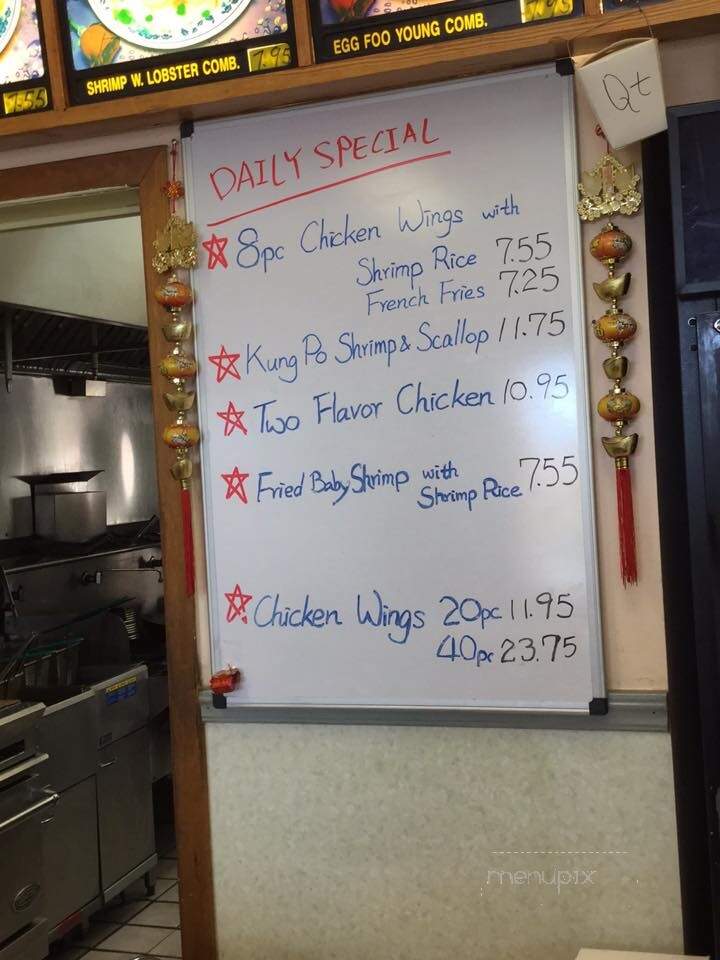 SHRIMP W. LOBSTER COMB. 7.95
EGG FOO YOUNG COMB.
Qt
DAILY SPECIAL
8pc Chicken Wings with
Shrimp Rice 7.55
French Fries 7.25
Kung Po Shrimp & Scallop 11.75
Two Flavor Chicken 10.95
Fried Baby Shrimp with
Shrimp Rice 7.55
Chicken Wings 20pc 11.95
40pc 23.75
menupix